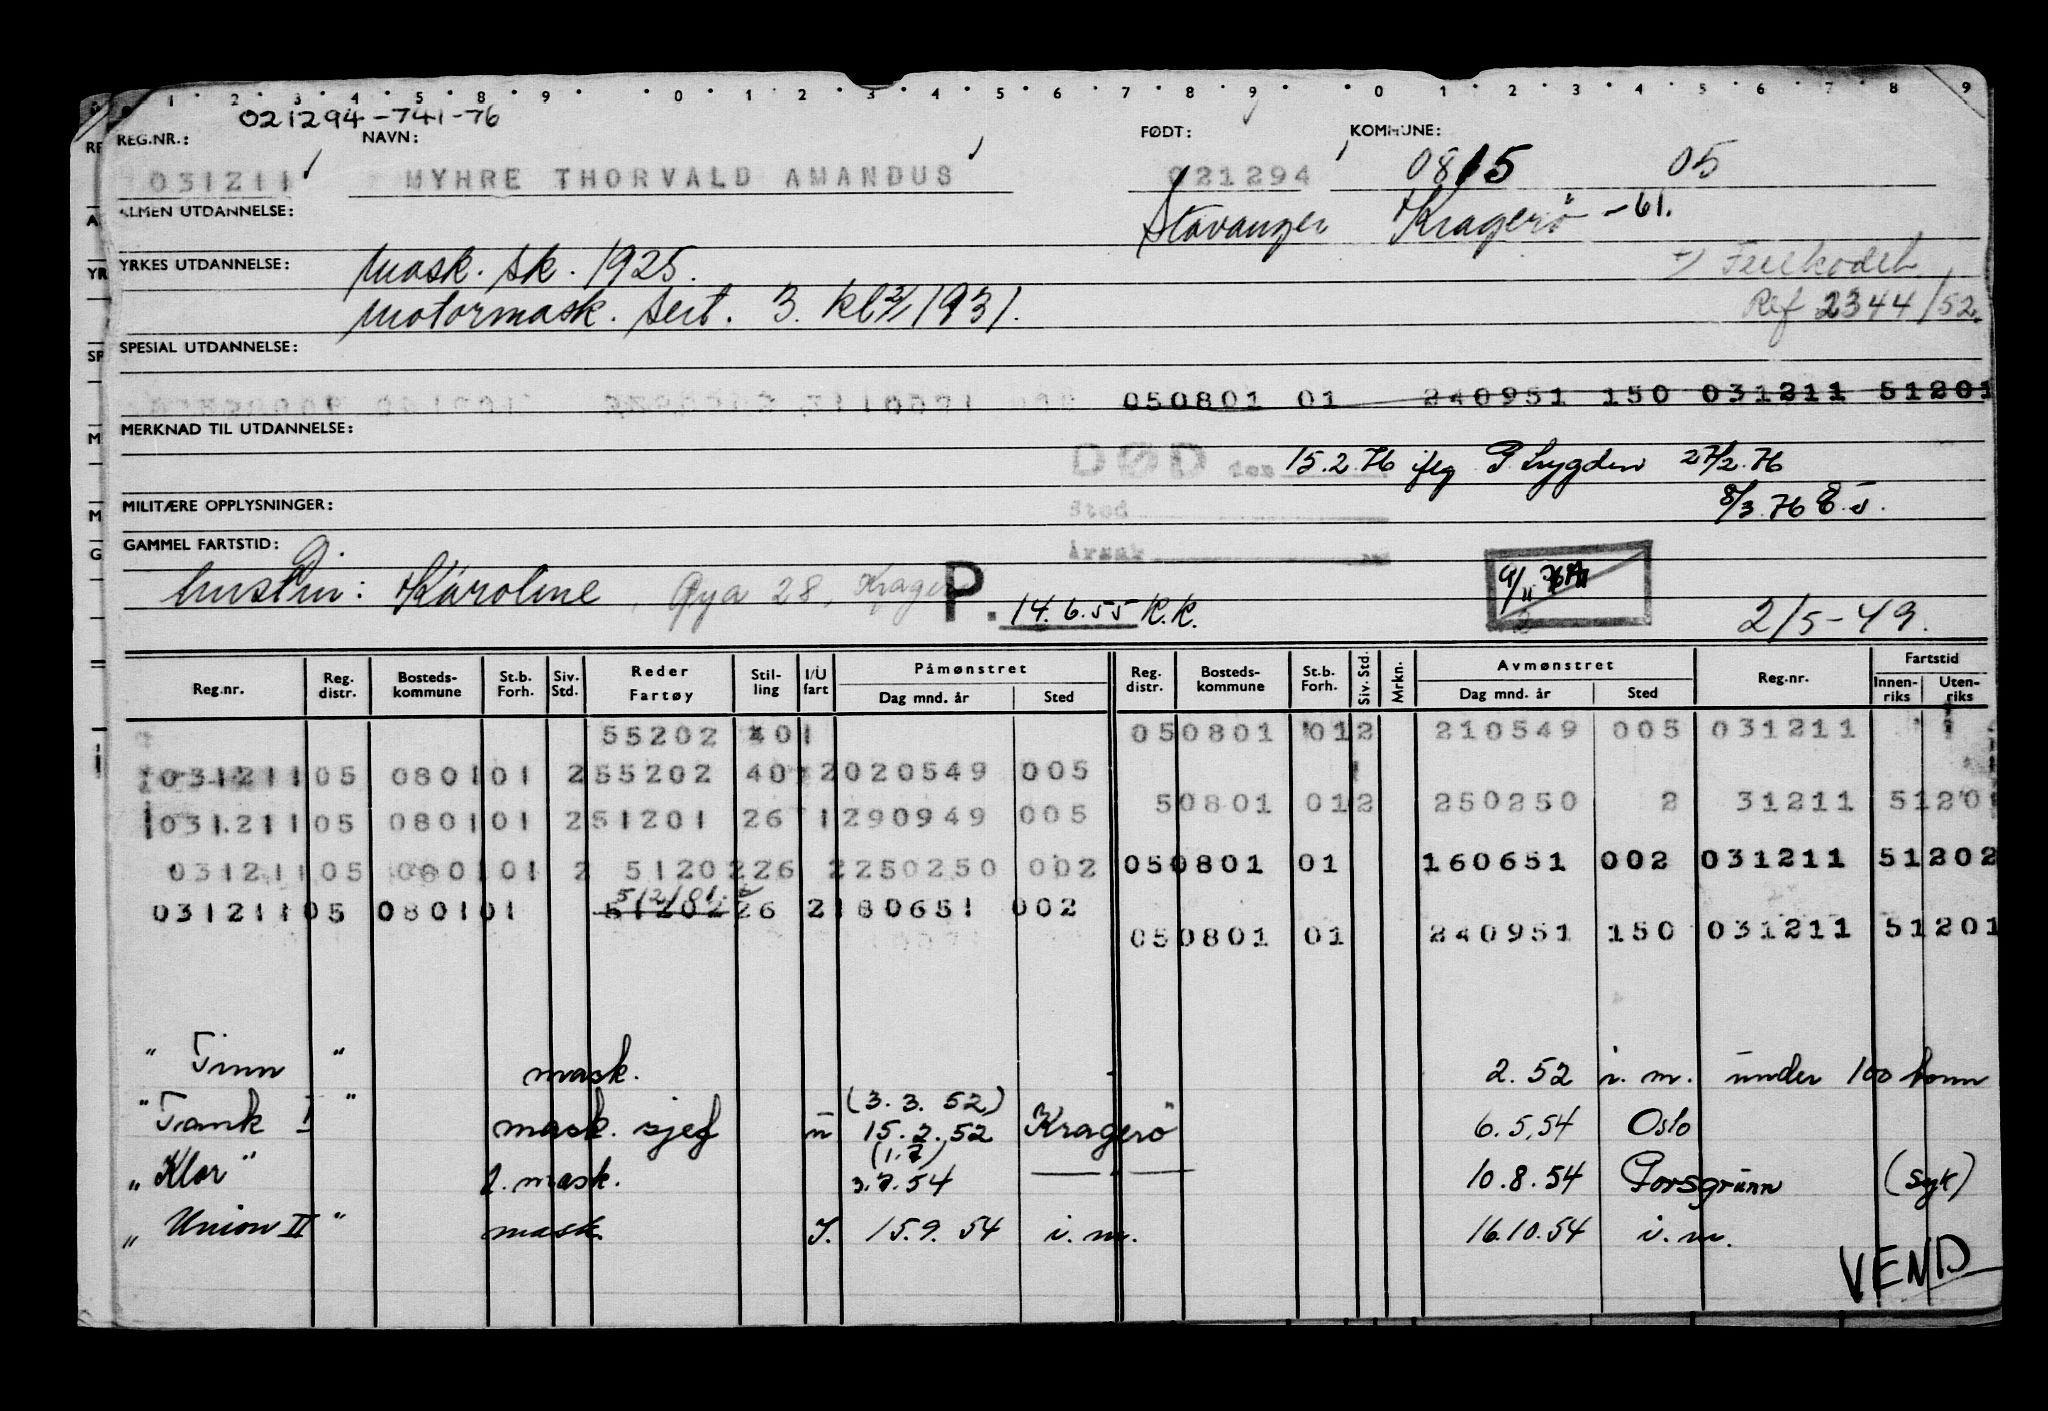 1 2 3 4 5 8 9 0 1 2 3 4 5 6 7 8 9 0 1 2 3 4 5 6 7 8 9
021294-741-76
REG.NR.: NAVN: FØDT: KOMMUNE:
0815 05
031211 MYHRE THORVALD AMANDUS 021294
ALMEN UTDANNELSE: Stavanger Kragerö -61.
YRKES UTDANNELSE: Mask. sk. 1925. Feilkodet
Motormask. sert. 3. kl 1931. Ref 2344/52
SPESIAL UTDANNELSE:
050801 01 240951 150 031211 51201
MERKNAD TIL UTDANNELSE:
DØD den 15.2.76 P. Lygden 27/2.76
MILITÆRE OPPLYSNINGER: Sted 8/3.76
GAMMEL FARTSTID: Årsak
hustru: Karoline, Øya 28, Kragerø P. 14.6.55 K.K. 2/5-49.
Reg.nr. Reg. distr. Bosteds-kommune St.b. Forh. Siv. Std. Reder Fartøy Stil-ling I/U fart Påmønstret Dag mnd. år Sted Reg. distr. Bosteds-kommune St.b. Forh. Siv. Std. Mrkn. Avmønstret Dag mnd. år Sted Reg.nr. Fartstid Innen-riks Uten-riks
55202 401 050801 012 210549 005 031211
031211 05 0801 01 2 55202 40 2 020549 005
50801 012 250250 2 31211 51201
031211 05 0801 01 2 51201 26 1 290949 005
031211 05 0801 01 2 51202 26 2 250250 002 050801 01 160651 002 031211 51202
51201
031211 05 0801 01 51202 26 2 180651 002
050801 01 240951 150 031211 51201
" Tinn " mask. 2.52 i.m. under 100 tonn
(3.3.52)
" Tank I " mask. sjef u 15.2.52 Kragerö 6.5.54 Oslo
(1.7)
" Klor " 2. mask. 3.7.54 — " — 10.8.54 Porsgrunn (syk)
" Union II " mask. I. 15.9.54 i.m. 16.10.54 i.m.
VEND